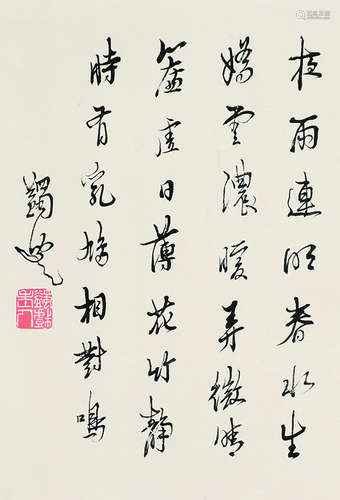 夜雨連明春水生
嬌雲濃暖弄微晴
簾虛日薄花竹靜
時有乳鳩相對鳴
蠲叟